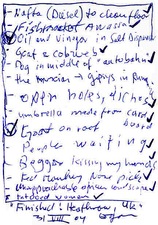 - Nafta (Diesel) to clean floor
- Fishmarket Awassa
Oil and Vinegar in Salt Dispenser
- Goat & cobweb
- Dog in middle of "autobahn"
the → gypsys in
- open holes, ditches
umbrella made from card board
- Goat on roof
- People waiting
- Beggar kissing my hands
- Red Monkey Nose pick
- Unapproachable
- tattood women
Finished: Heathrow, UK.
31 VIII 04